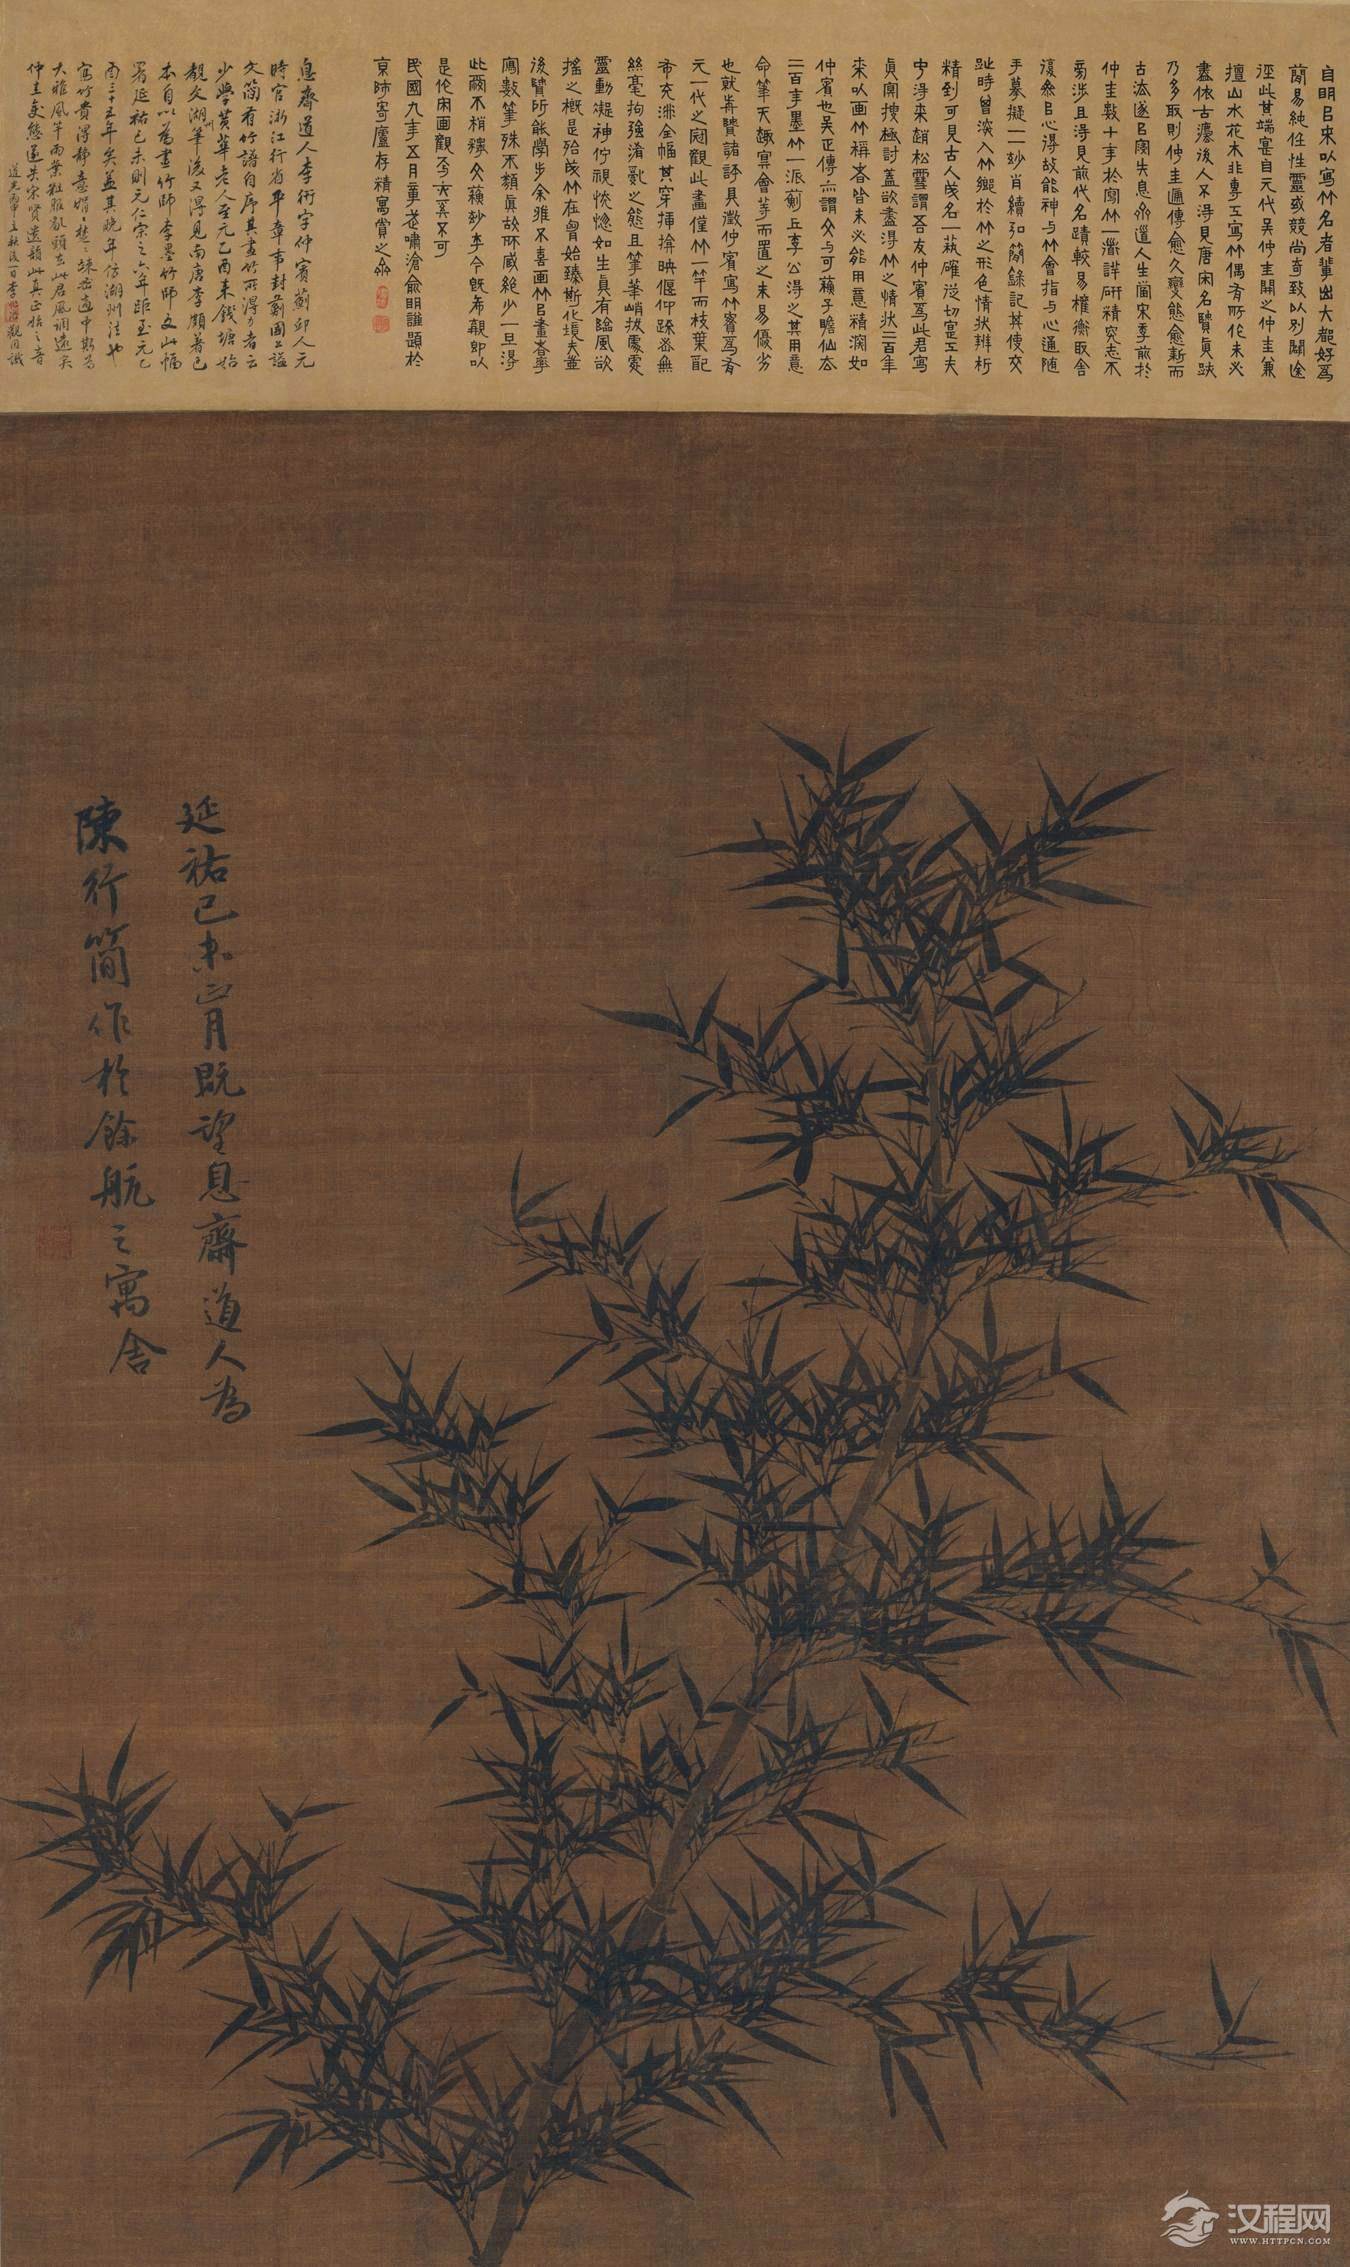 自明㠯來以寫竹名者輩出大都好爲
簡易純任性靈或競尚奇致以別闢途
逕此其端寔自元代吳仲圭開之仲圭兼
擅山水花木非專工寫竹偶有所作未必
盡依古灋後人不得見唐宋名賢真跡
乃多取則仲圭遞傳愈久變態愈新而
古法遂㠯寖失息齋道人生當宋季前於
仲圭數十年於寫竹一灋詳研精究志不
旁涉且得見前代名蹟較易權衡取舍
復參㠯心得故能神与竹會指与心通隨
手摹擬一一妙肖續弘簡錄記其使交
趾時曾深入竹鄉於竹之形色情狀辨析
精到可見古人成名一蓺確從切寔工夫
中得來趙松雪謂吾友仲賓爲此君寫
真冥搜極討蓋欲盡得竹之情狀二百年
來以画竹稱者皆未必能用意精深如
仲賓也吳正傳亦謂文与可蘇子瞻仙去
二百年墨竹一派薊丘李公得之其用意
命筆天趣冥會等而置之未易優劣
也就耑賢諸評具徵仲賓寫竹實爲有
元一代之冠觀此畫僅竹一竿而枝葉配
布充滿全幅其穿插掩映偃仰疏密無
絲毫拘強淆亂之態且筆筆峭拔處處
靈動凝神佇視恍惚如生真有臨風欲
搖之概是殆成竹在胷始臻斯化境夫豈
後賢所能學步余雅不喜画竹㠯畫者畢
寫數筆殊不類真故所臧絶少一旦得
此爾不稍文蘇妙今旣希覯即以
是宋画觀奚不可
民國九年五月滄俞明謹題於
京師寄廬存精寓賞之齋
息齋道人李衎字仲賓薊邱人元
時官浙江行省平章事封薊國公諡
文簡有竹譜自序其畫竹所得力者云
少學黃華老人至元乙酉來錢塘始
覩文湖州筆後又得見南唐李頗著色
本自以爲畫竹師李墨竹師文此幅
署延祐己未則元仁宗之六年距至元乙
酉三十五年矣蓋其晚年仿湖州法也
寫竹貴得靜意娟娟楚楚疎密適中斯爲
大雅風竿雨葉粗服亂頭去此君風調遠矣
仲圭變態遂失宋賢遺韻此真正之音
道光丙申立秋後一日李觀因識
延祐己未正月既望息齋道人為
陳行簡作於餘杭之寓舍
汉程网
WWW.HTTPCN.COM